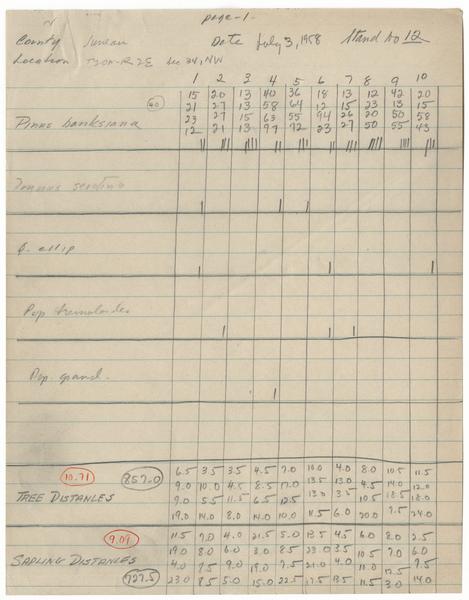 page-1-
County Juneau Date July 3, 1958 Stand No 12
Location T20N-R2E Sec 34, NW
1 2 3 4 5 6 7 8 9 10
15 20 13 40 36 18 13 12 42 20
40 21 27 13 58 64 12 15 23 13 15
Pinus banksiana 23 27 15 63 55 94 26 20 50 58
12 21 13 97 72 23 27 50 55 43
Prunus serotina
Q. ellip
Pop tremuloides
Pop. grand.
6.5 3.5 3.5 4.5 7.0 10.0 4.0 8.0 10.5 11.5
10.71 857.0 9.0 10.0 4.5 8.5 17.0 13.0 13.0 4.5 14.0 12.0
TREE DISTANCES 9.0 5.5 11.5 6.5 12.5 13.0 3.5 10.5 18.5 18.0
19.0 14.0 8.0 14.0 10.0 11.5 6.0 20.0 9.5 24.0
9.09 11.5 7.0 4.0 21.5 5.0 13.5 4.5 6.0 8.0 2.5
19.0 8.0 6.0 3.0 8.5 23.0 3.5 10.5 7.0 6.0
SAPLING DISTANCES 4.0 9.0 19.0 7.5 21.0 4.0 11.0 3.0 9.5
727.5 23.0 8.5 5.0 15.0 22.5 17.5 13.5 11.5 14.0